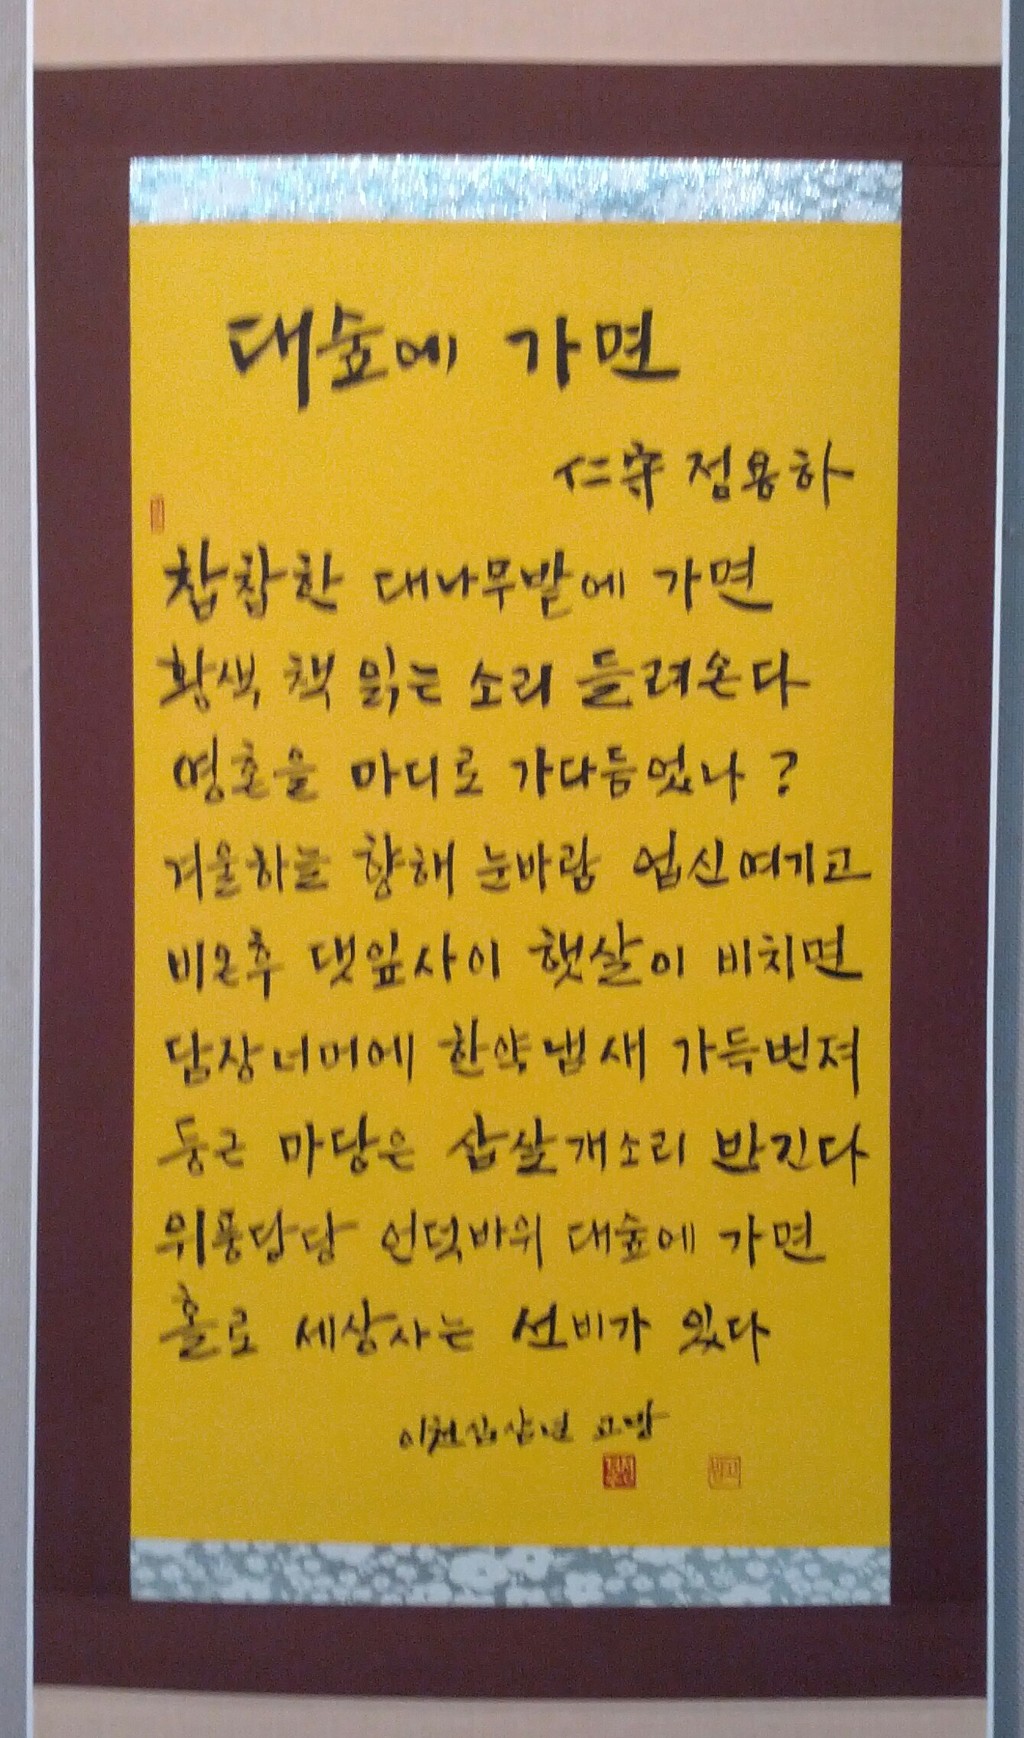 대숲에 가면
仁守 정용하
참참한 대나무밭에 가면
황색 책 읽는 소리 들려온다
영혼을 마디로 가다듬었나?
겨울하늘 향해 눈바람 업신여기고
비온후 댓잎사이 햇살이 비치면
담장너머에 한약냄새 가득번져
둥근 마당은 삽살개소리 반긴다
위풍당당 언덕바위 대숲에 가면
홀로 세상사는 선비가 있다
이천십삼년 고방